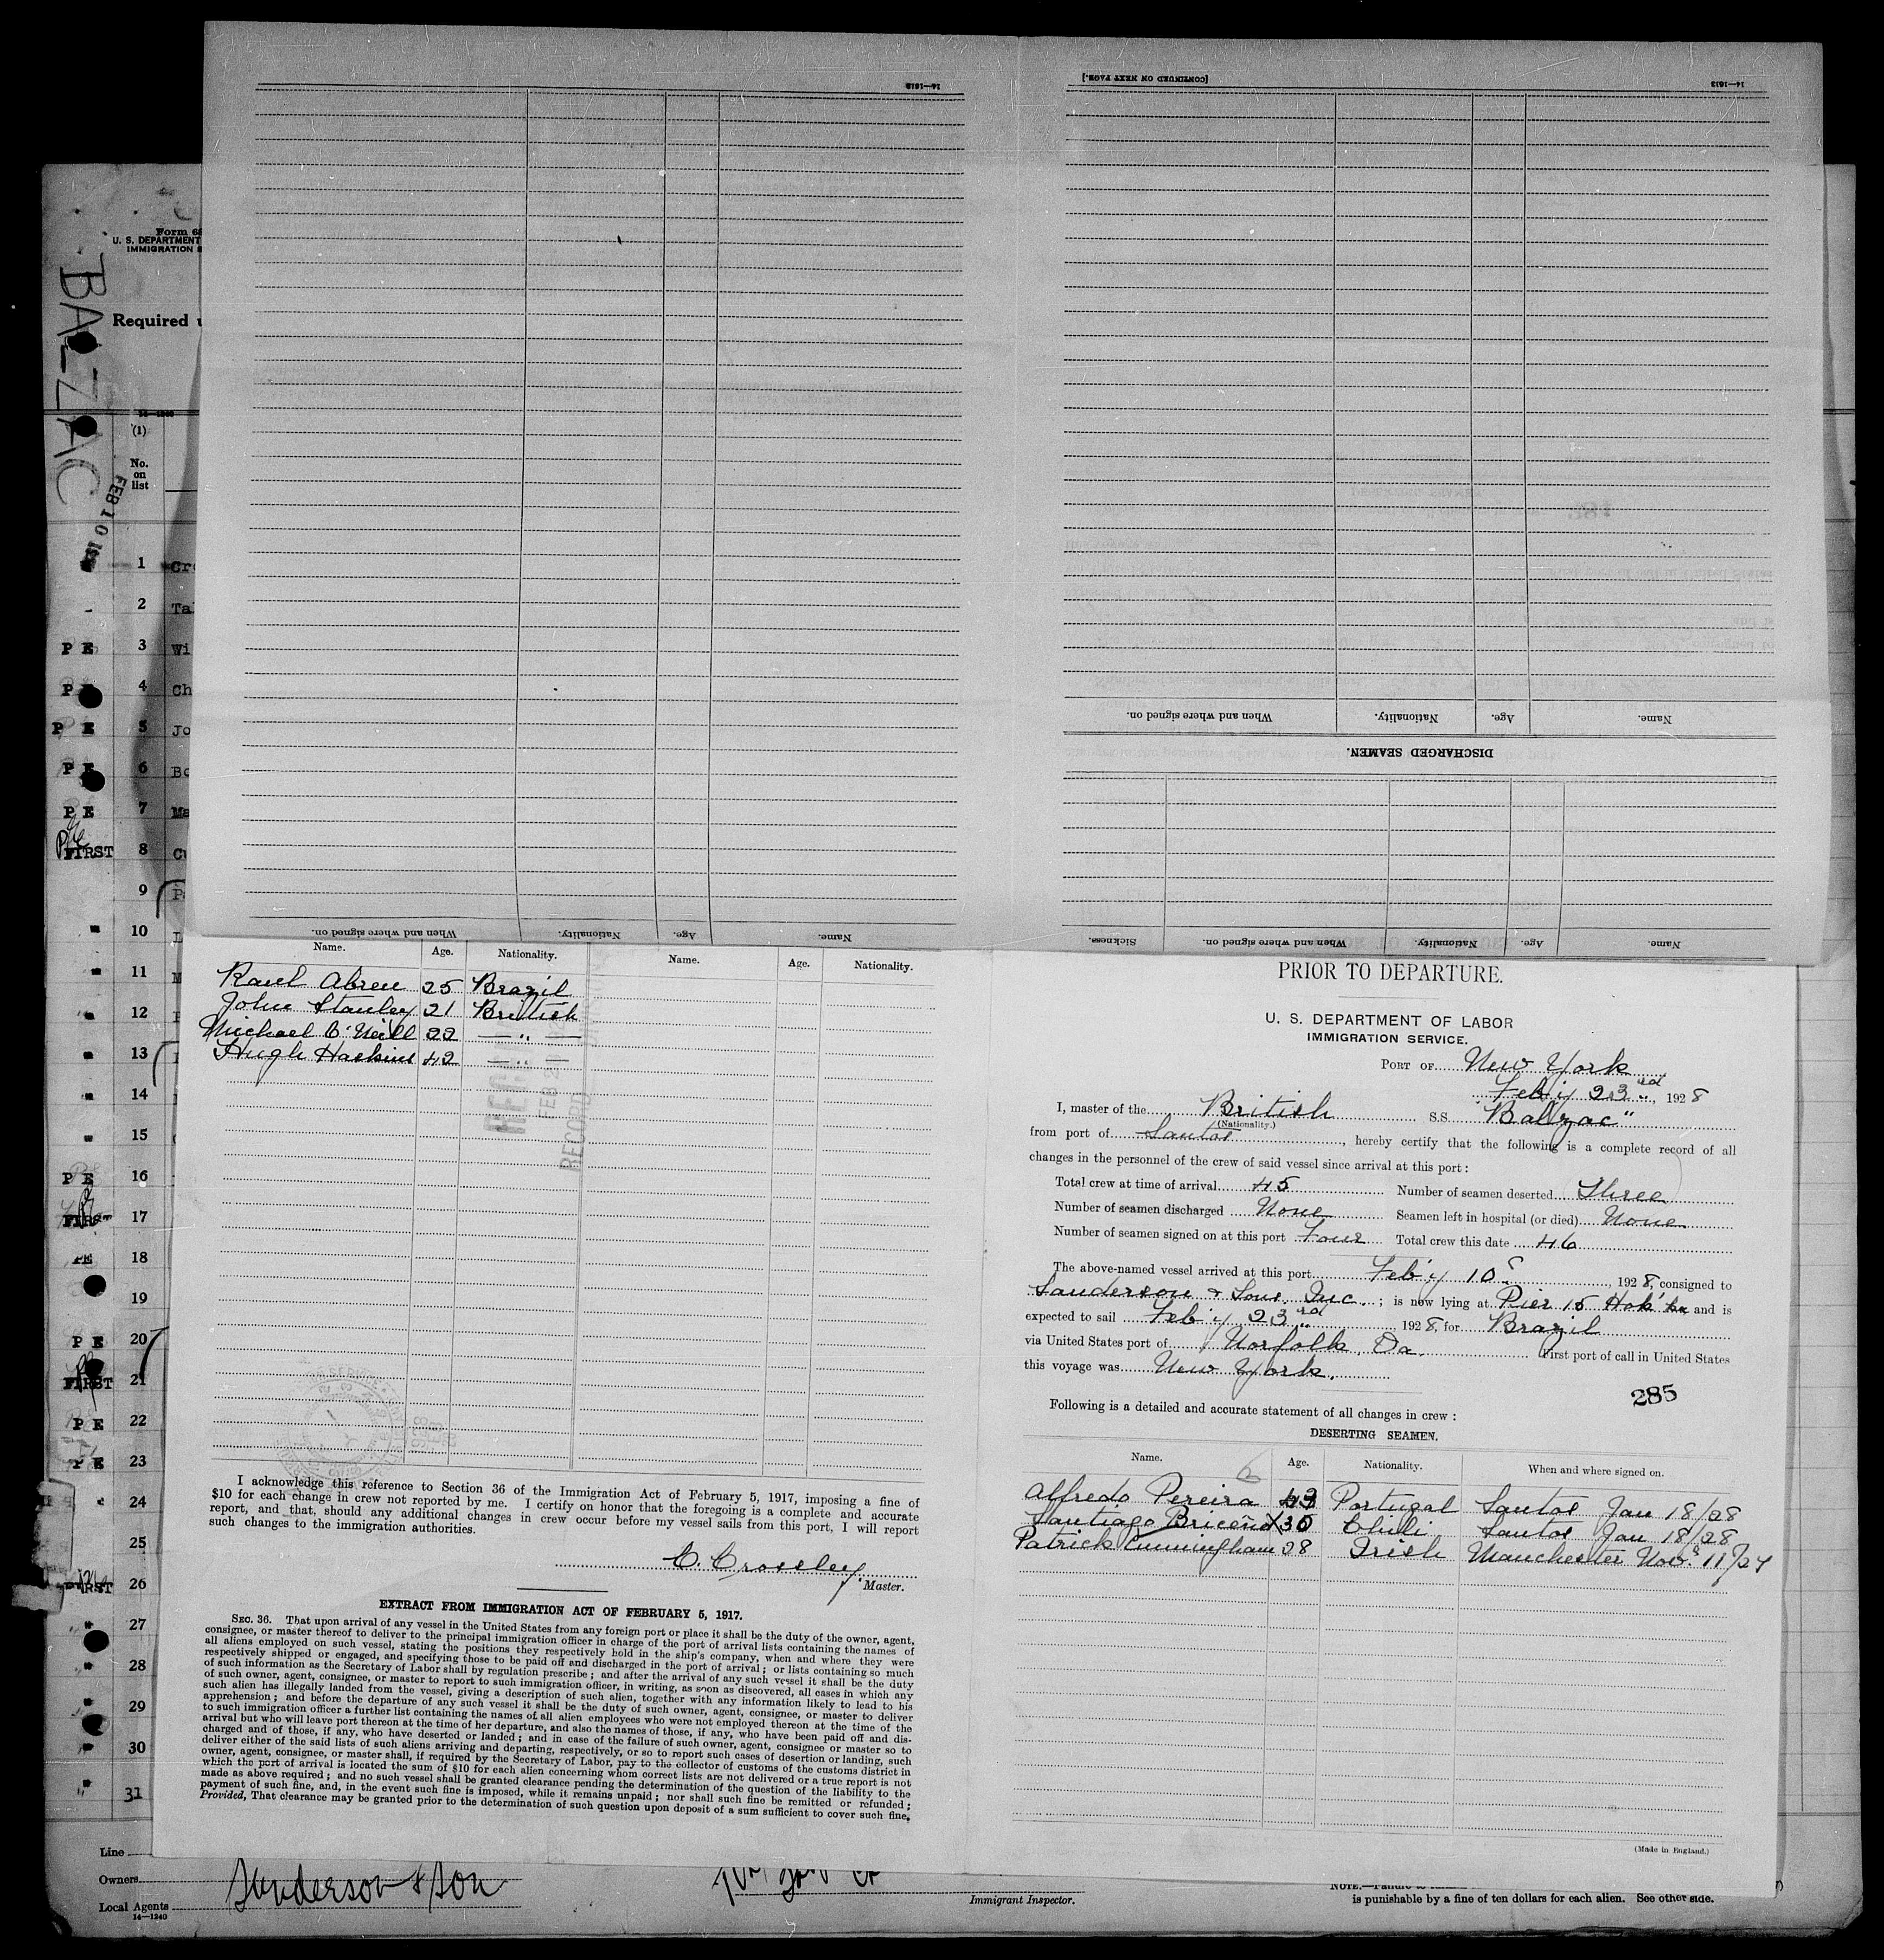 14—1613
[CONTINUED ON NEXT PAGE.]
14—1613
When and where signed on.
Nationality.
Age.
Name.
DISCHARGED SEAMEN.
Sickness.
When and where signed on.
Nationality.
Age.
Name.
When and where signed on.
Nationality.
Age.
Name.
U. S. DEPARTMENT
IMMIGRATION
BALZAC
Required
14—1240
(1)
No.
on
list
FEB 10
1
2
PE 3 Wi
PE 4 Ch
PE 5 Jo
PE 6 Bo
PE 7 Ma
FIRST 8
9
" 10
" 11
" 12
" 13
" 14
" 15
PE 16
FIRST 17
PE 18
19
PE 20
FIRST 21
PE 22
PE 23
24
25
FIRST 26
" 27
" 28
" 29
" 30
" 31
Name. Age. Nationality. Name. Age. Nationality.
Raul Abreu 25 Brazil
John Stanley 21 British
Michael O'Neill 22 — " —
Hugh Haskins 42 — " —
FEB 21
RECORD
I acknowledge this reference to Section 36 of the Immigration Act of February 5, 1917, imposing a fine of
$10 for each change in crew not reported by me. I certify on honor that the foregoing is a complete and accurate
report, and that, should any additional changes in crew occur before my vessel sails from this port, I will report
such changes to the immigration authorities.
C. Crossley
Master.
EXTRACT FROM IMMIGRATION ACT OF FEBRUARY 5, 1917.
SEC. 36. That upon arrival of any vessel in the United States from any foreign port or place it shall be the duty of the owner, agent,
consignee, or master thereof to deliver to the principal immigration officer in charge of the port of arrival lists containing the names of
all aliens employed on such vessel, stating the positions they respectively hold in the ship's company, when and where they were
respectively shipped or engaged, and specifying those to be paid off and discharged in the port of arrival; or lists containing so much
of such information as the Secretary of Labor shall by regulation prescribe; and after the arrival of any such vessel it shall be the duty
of such owner, agent, consignee, or master to report to such immigration officer, in writing, as soon as discovered, all cases in which any
such alien has illegally landed from the vessel, giving a description of such alien, together with any information likely to lead to his
apprehension; and before the departure of any such vessel it shall be the duty of such owner, agent, consignee, or master to deliver
to such immigration officer a further list containing the names of all alien employees who were not employed thereon at the time of the
arrival but who will leave port thereon at the time of her departure, and also the names of those, if any, who have been paid off and dis-
charged and of those, if any, who have deserted or landed; and in case of the failure of such owner, agent, consignee or master so to
deliver either of the said lists of such aliens arriving and departing, respectively, or so to report such cases of desertion or landing, such
owner, agent, consignee, or master shall, if required by the Secretary of Labor, pay to the collector of customs of the customs district in
which the port of arrival is located the sum of $10 for each alien concerning whom correct lists are not delivered or a true report is not
made as above required; and no such vessel shall be granted clearance pending the determination of the question of the liability to the
payment of such fine, and, in the event such fine is imposed, while it remains unpaid; nor shall such fine be remitted or refunded;
Provided, That clearance may be granted prior to the determination of such question upon deposit of a sum sufficient to cover such fine.
PRIOR TO DEPARTURE.
U. S. DEPARTMENT OF LABOR
IMMIGRATION SERVICE.
PORT OF New York
Feb'y 23rd, 1928
I, master of the British S.S. "Balzac"
(Nationality.)
from port of Santos, hereby certify that the following is a complete record of all
changes in the personnel of the crew of said vessel since arrival at this port:
Total crew at time of arrival 45 Number of seamen deserted Three
Number of seamen discharged None Seamen left in hospital (or died) None
Number of seamen signed on at this port Four Total crew this date 46
The above-named vessel arrived at this port Feb'y 10, 1928, consigned to
Sanderson & Sons, Inc.; is now lying at Pier 15 Hok'kn and is
expected to sail Feb'y 23rd, 1928, for Brazil
via United States port of Norfolk, Va. First port of call in United States
this voyage was New York.
285
Following is a detailed and accurate statement of all changes in crew:
DESERTING SEAMEN.
Name. Age. Nationality. When and where signed on.
Alfredo Pereira 43 Portugal Santos Jan 18/28
Santiago Briceño X30 Chili Santos Jan 18/28
Patrick Cunningham 28 Irish Manchester Nov. 11/27
(Made in England.)
Line
Owners
Local Agents
Sanderson & Son
14—1240
Immigrant Inspector.
is punishable by a fine of ten dollars for each alien. See other side.